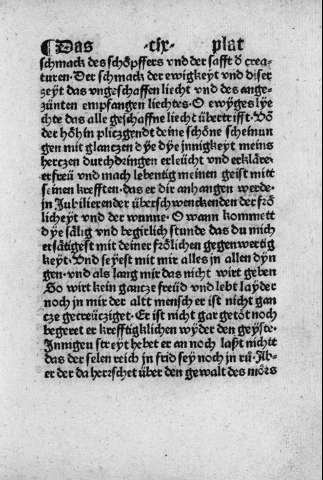 ¶Das ·cix· plat
schmack des schöpffers vnd der safft ð crea⸗
turen. Der schmack der ewigkeyt vnd diser
zeyt das vngeschaffen liecht vnd des ange⸗
zünten empfangen liechtes. O ewyges lye
chte das alle geschaffne liecht übertrifft. Võ
der höhin pliczgendt deine schöne scheinun
gen mit glanczen dye dye jnnigkeyt meins
herczen durchdringen erleücht vnd erkläre.
erfreü vnd mach lebentig meinen geist mitt
seinen krefften. das er dir anhangen werde.
jn Jubilierender überschwenckenden der frö
licheyt vnd der wunne. O wann kommett
dye sälig vnd begirlich stunde das du mich
ersätigest mit deiner frölichen gegenwertig
keyt. Vnd seyest mit mir alles jn allen dyn
gen. vnd als lang mir das nicht wirt geben
So wirt kein gancze freüd vnd lebt layder
noch jn mir der altt mensch er ist nicht gan
cze gecreücziget. Er ist nicht gar getöt noch
begeret er krefftigklichen wyder den geyste.
Innigen streyt hebet er an noch laßt nichtt
das der selen reich jn frid sey noch jn rů. Ab⸗
er der da herrschet über den gewalt des mörs